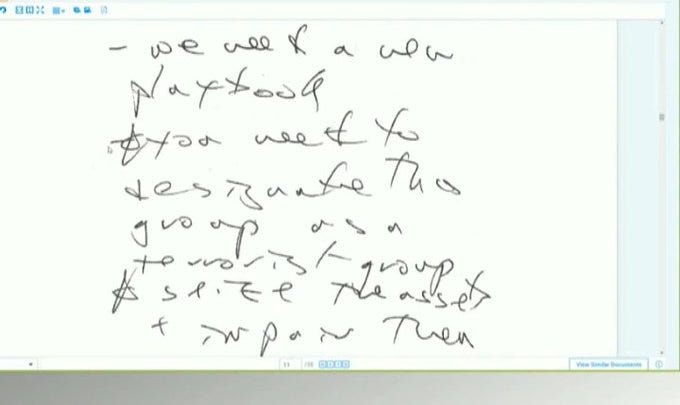 - we need a new
playbook
you need to
designate this
group as a
terrorist group
& seize the assets
+ impair them
11
View Similar Documents